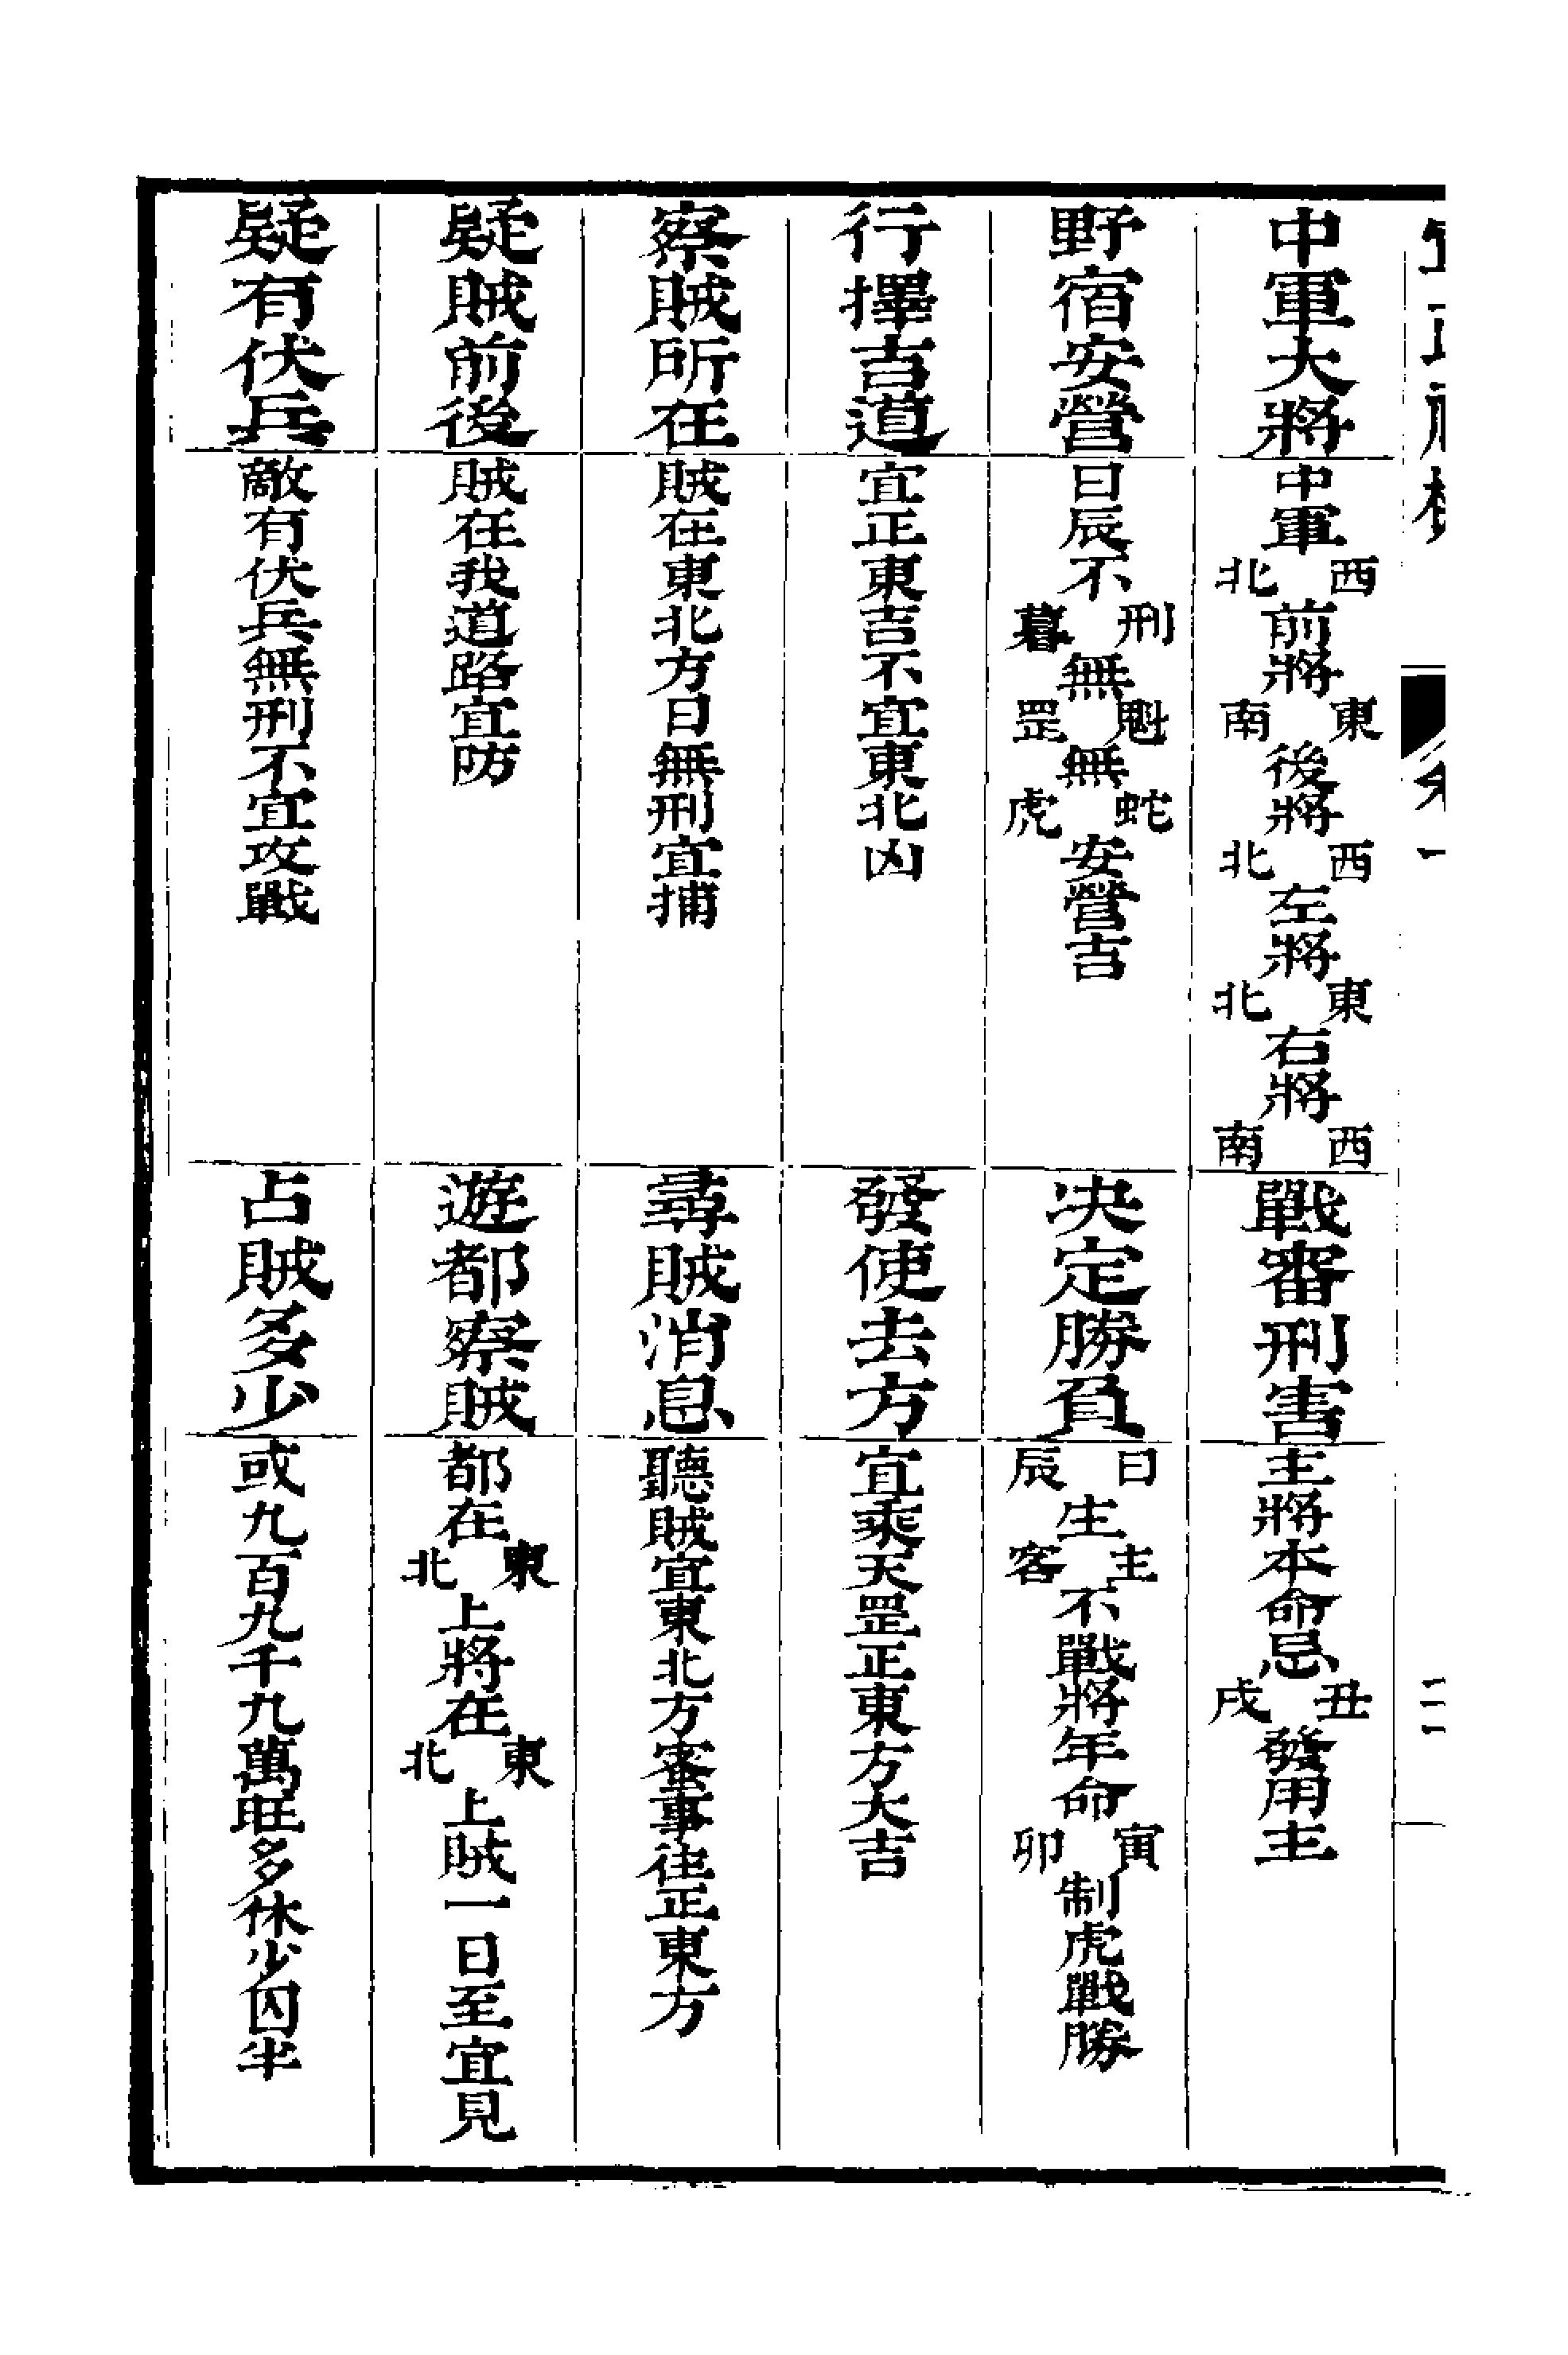 中軍大將 中軍西北前將東南後將西北左將東北右將西南 戰審刑害 主將本命忌丑戌發用主
野宿安營 日辰不刑暮無魁罡無蛇虎安營吉 决定勝負 日辰生主客不戰將年命寅卯制虎戰勝
行擇吉道 宜正東吉不宜東北凶 發使去方 宜乘天罡正東方大吉
察賊所在 賊在東北方日無刑宜捕 尋賊消息 聽賊宜東北方密事往正東方
疑賊前後 賊在我道路宜防 遊都察賊 都在東北上將在東北上賊一日至宜見
疑有伏兵 敵有伏兵無刑不宜攻戰 占賊多少 或九百九千九萬旺多休少囚半